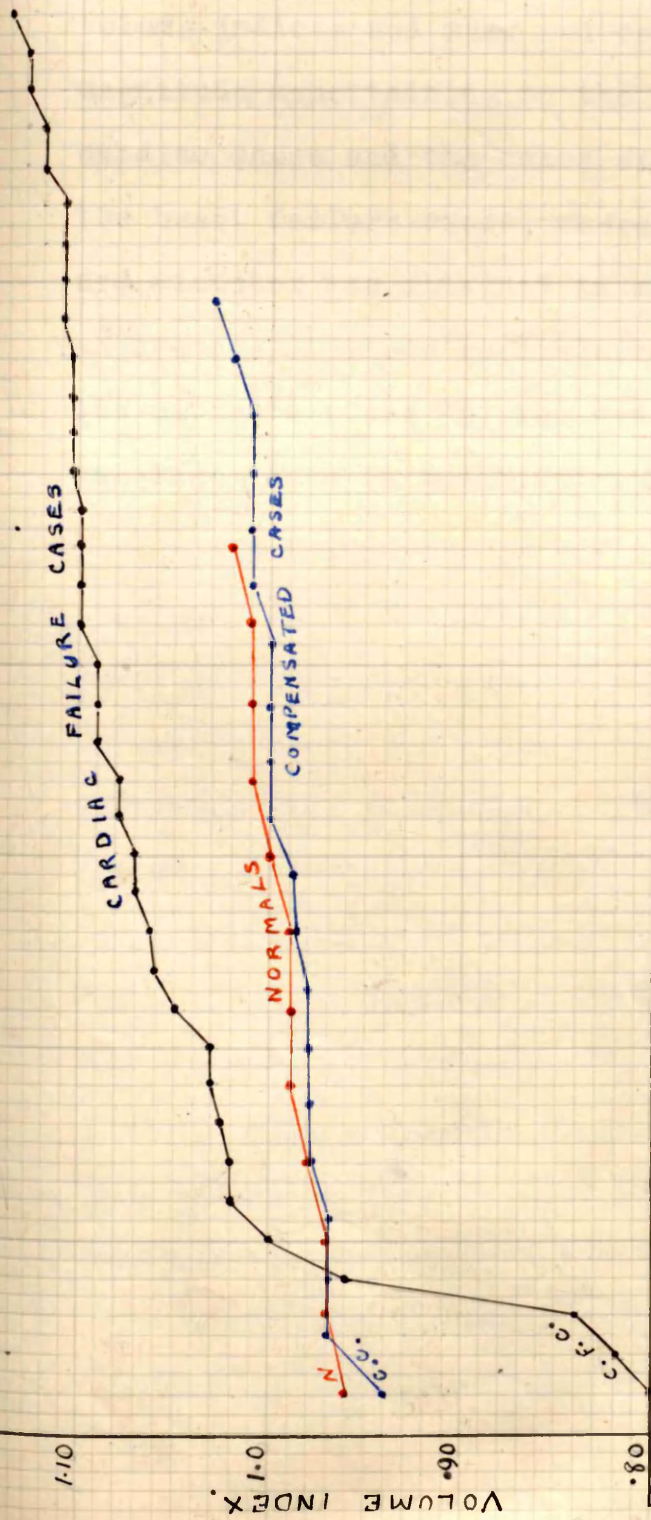 CARDIAC FAILURE CASES
NORMALS
COMPENSATED CASES
N
C.C.
C.F.C.
1.10
1.0
.90
.80
VOLUME INDEX.